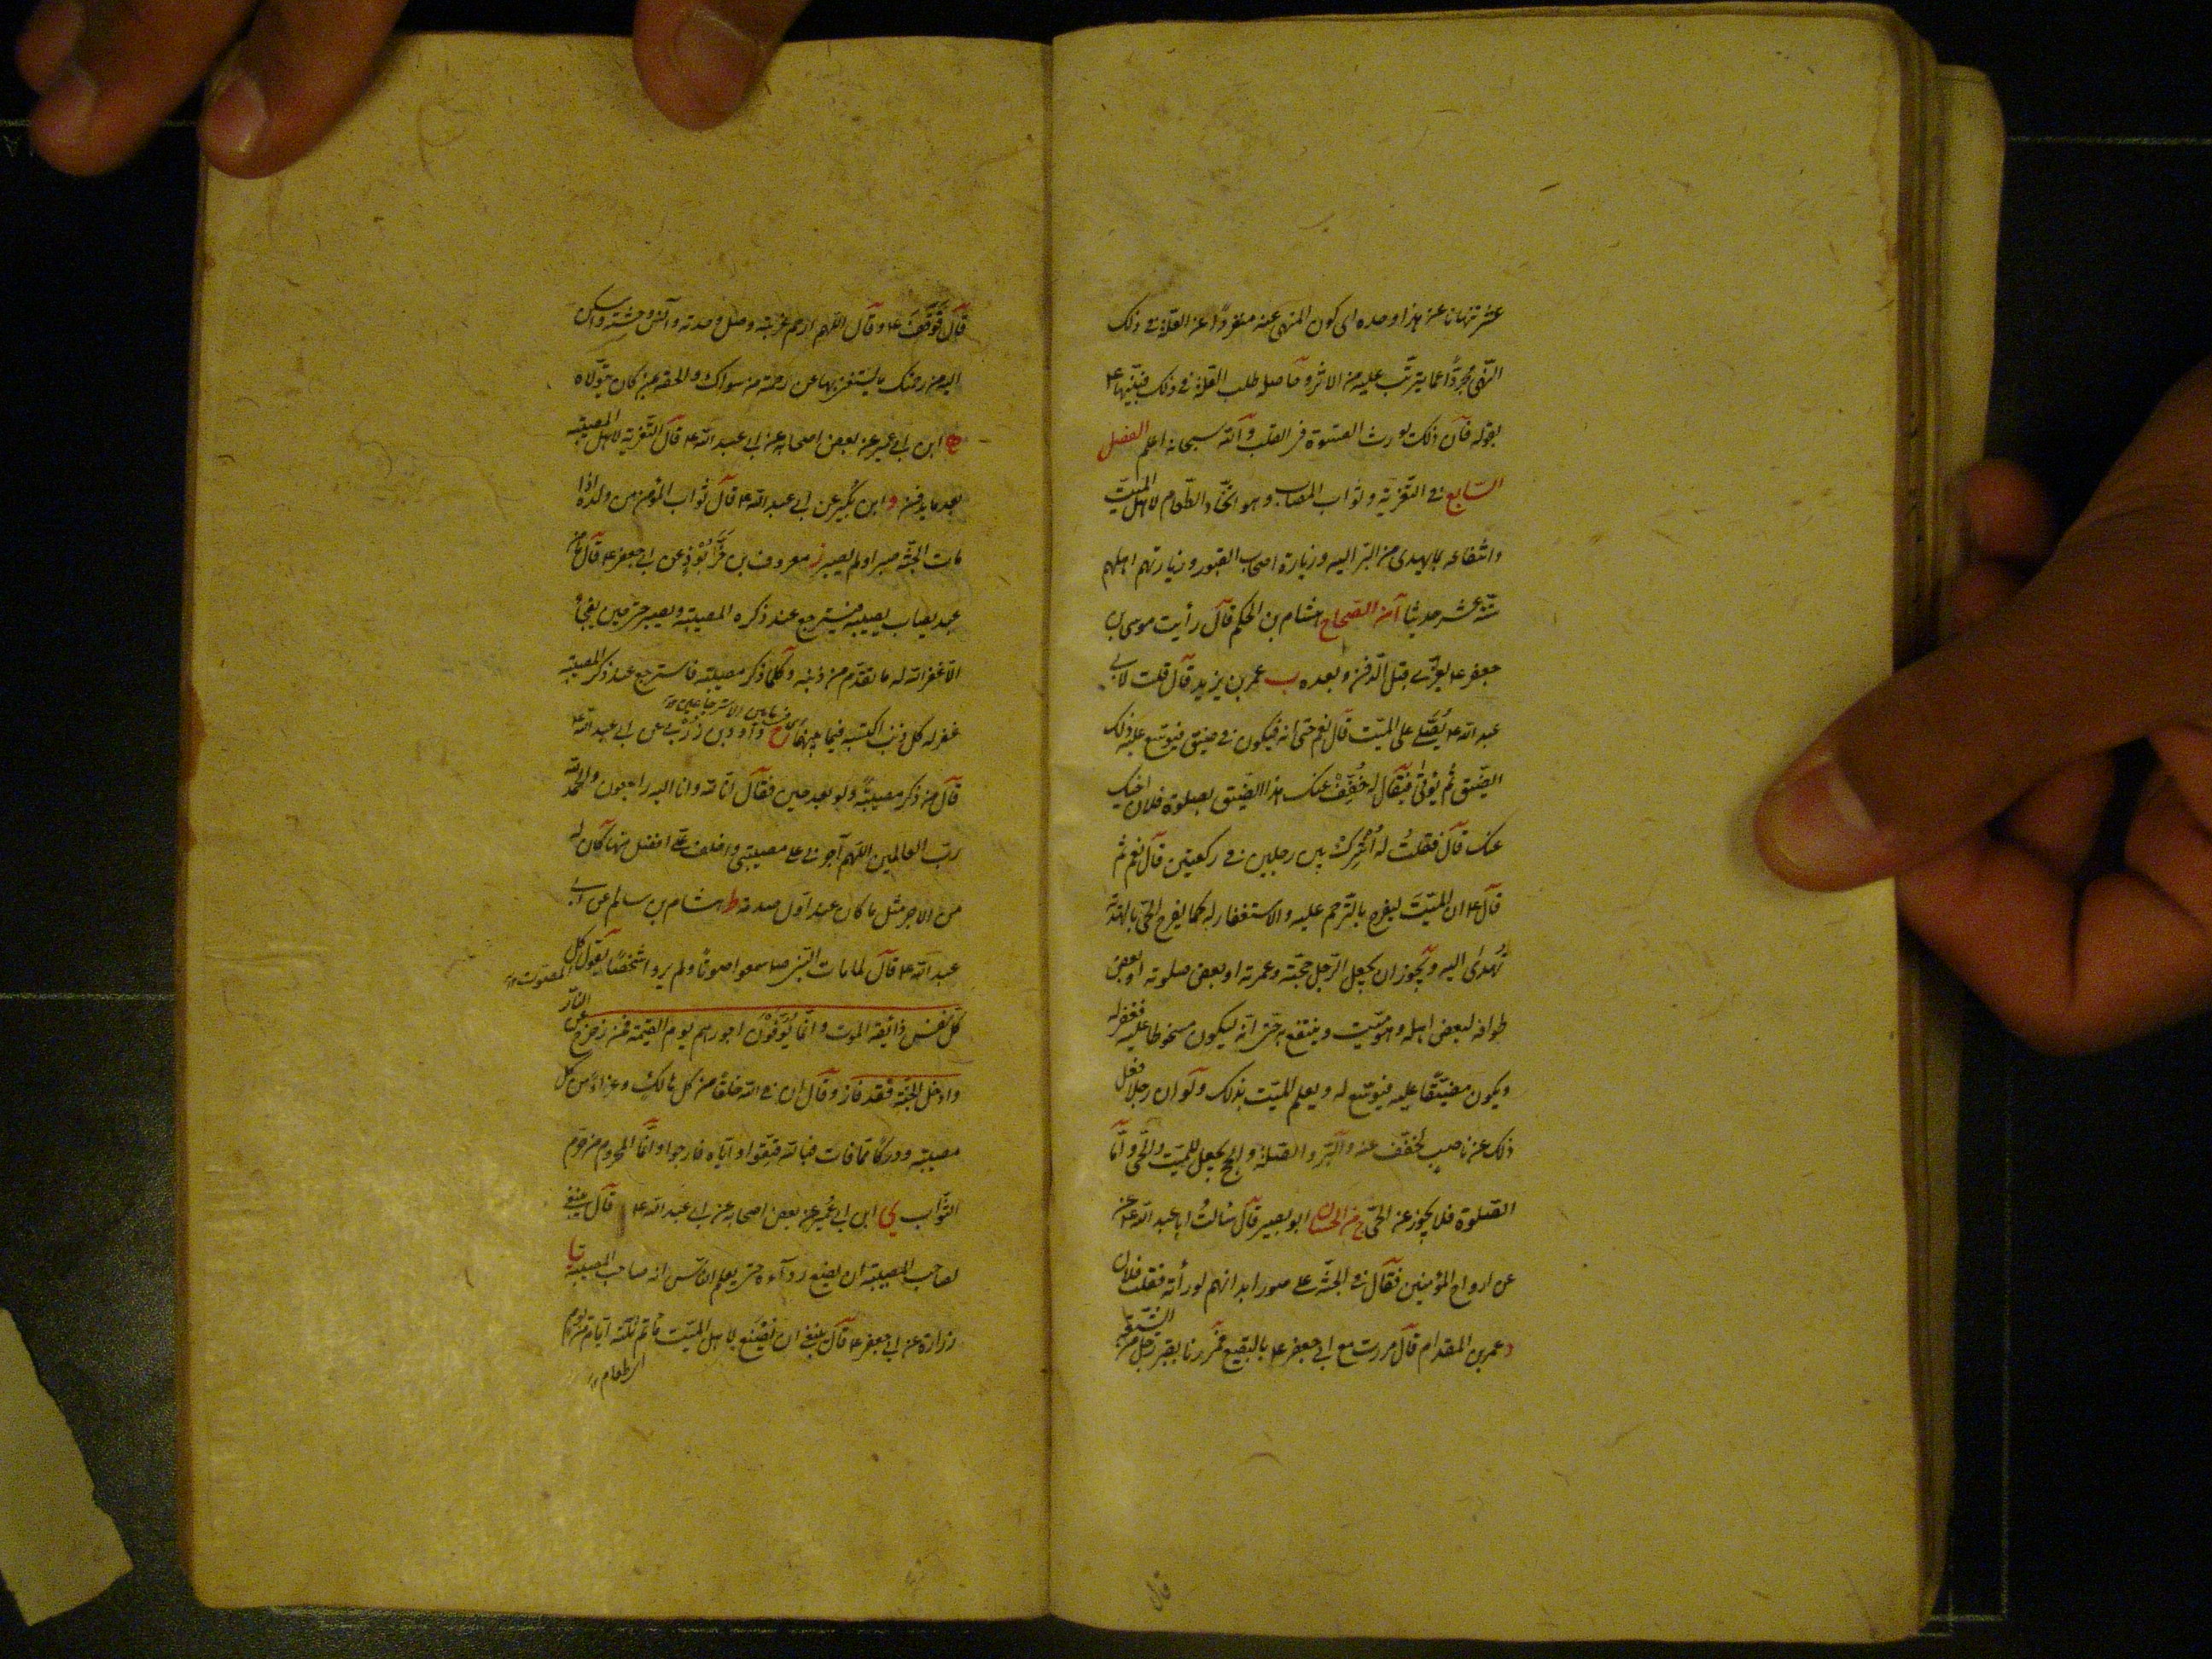 عن تنهانا عن هذا وحده اى كون المنهى عنه منفردا عن العلة فى ذلك
النهى مجردا عما يترتب عليه من الاثر وحاصله طلب العلة فى ذلك فبينها ع
بقوله فان ذلك يورث القسوة فى القلب والله سبحانه اعلم الفصل
السابع فى التعزية وثواب المصاب وهو اتخاذ الطعام لاهل الميت
وانتفاعه بما يهدى من البر اليه وزيارة اصحاب القبور وزيارتهم اهلهم
ستة عشر حديثا آ من الصحاح هشام بن الحكم قال رأيت موسى بن
جعفر ع يعزى قبل الدفن وبعده ب عمر بن يزيد قال قلت لابى
عبد الله ع يُصَلّى على الميت قال نعم حتى انه فيكون فى ضيق فيوسع عليه ذلك
الضيق ثم يؤتى فيقال له خُفِّفَ عنك هذا الضيق بصلوة فلان اخيك
عنك قال فقلتُ له أشرك بين رجلين فى ركعتين قال نعم ثم
قال ع ان الميت ليفرح بالترحم عليه والاستغفار له كما يفرح الحى بالهدية
تُهدى اليه ويجوز ان يجعل الرجل حجته وعمرته او بعض صلوته او بعض
طوافه لبعض اهله وهو ميت وينتفع به حتى انه ليكون مسخوطا عليه فغفر له
ويكون مضيقا عليه فيوسع له ويعلم الميت بذلك ولو ان رجلا فعل
ذلك عن ناصب لخفف عنه والبر والصلة والحج يجعل للميت والحى واما
الصلوة فلا يجوز عن الحى ج من الحسان ابو بصير قال سألتُ ابا عبد الله ع
عن ارواح المؤمنين فقال فى الجنة على صور ابدانهم لو رأته فقلت فلان
د عمر بن المقدام قال مررت مع ابى جعفر ع بالبقيع فمررنا بقبر رجل من الشيعة
قال
قال فوقف ع وقال اللهم ارحم غربته وصل وحدته وآنس وحشته واسكن
اليه من رحمتك ما يستغنى بها عن رحمة من سواك والحقه بمن كان يتولاه
ه ابن ابى عمير عن بعض اصحابه عن ابى عبد الله ع قال التعزية لاهل المصيبة
بعد ما يدفن و ابن بكير عن ابى عبد الله ع قال ثواب المؤمن من ولده اذا
مات الجنة صبر او لم يصبر ز معروف بن خَرَّبُوْذ عن ابى جعفر ع قال ما من
عبد يصاب بمصيبة فيسترجع عند ذكره المصيبة ويصبر حين يفجأ
الا غفر الله له ما تقدم من ذنبه وكلما ذكر مصيبته فاسترجع عند ذكر المصيبة
غفر له كل ذنب اكتسبه فيما بينهما ح داود بن زربى عن ابى عبد الله ع
قال من ذكر مصيبته ولو بعد حين فقال انا لله وانا اليه راجعون والحمد لله
رب العالمين اللهم آجرنى على مصيبتى واخلف على افضل منها كان له
من الاجر مثل ما كان عند اول صدمة ط هشام بن سالم عن ابى
عبد الله ع قال لما مات النبى ص سمعوا صوتا ولم يروا شخصا يقول كل
كل نفس ذائقة الموت وانما توفون اجوركم يوم القيمة فمن زحزح عن النار
وادخل الجنة فقد فاز وقال ان فى الله خلفا من كل هالك وعزاء من كل
مصيبة ودركا مما فات فبالله فثقوا واياه فارجوا وانما المحروم من حرم
الثواب ى ابن ابى عمير عن بعض اصحابه عن ابى عبد الله ع قال ينبغى
لصاحب المصيبة ان يضع رداءه حتى يعلم الناس انه صاحب المصيبة يا
زرارة عن ابى جعفر ع قال ينبغى ان يُصْنَع لاهل الميت مأتم ثلثة ايام من يوم
اى طعام